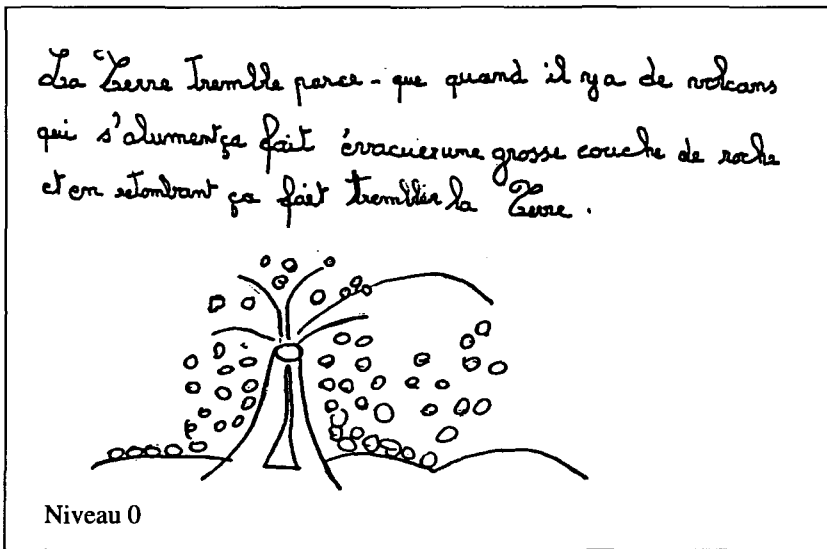 La Terre Tremble parce-que quand il y a de volcans
qui s'alument ça fait évacuer une grosse couche de roche
et en retombant ça fait trembler la Terre.
Niveau 0